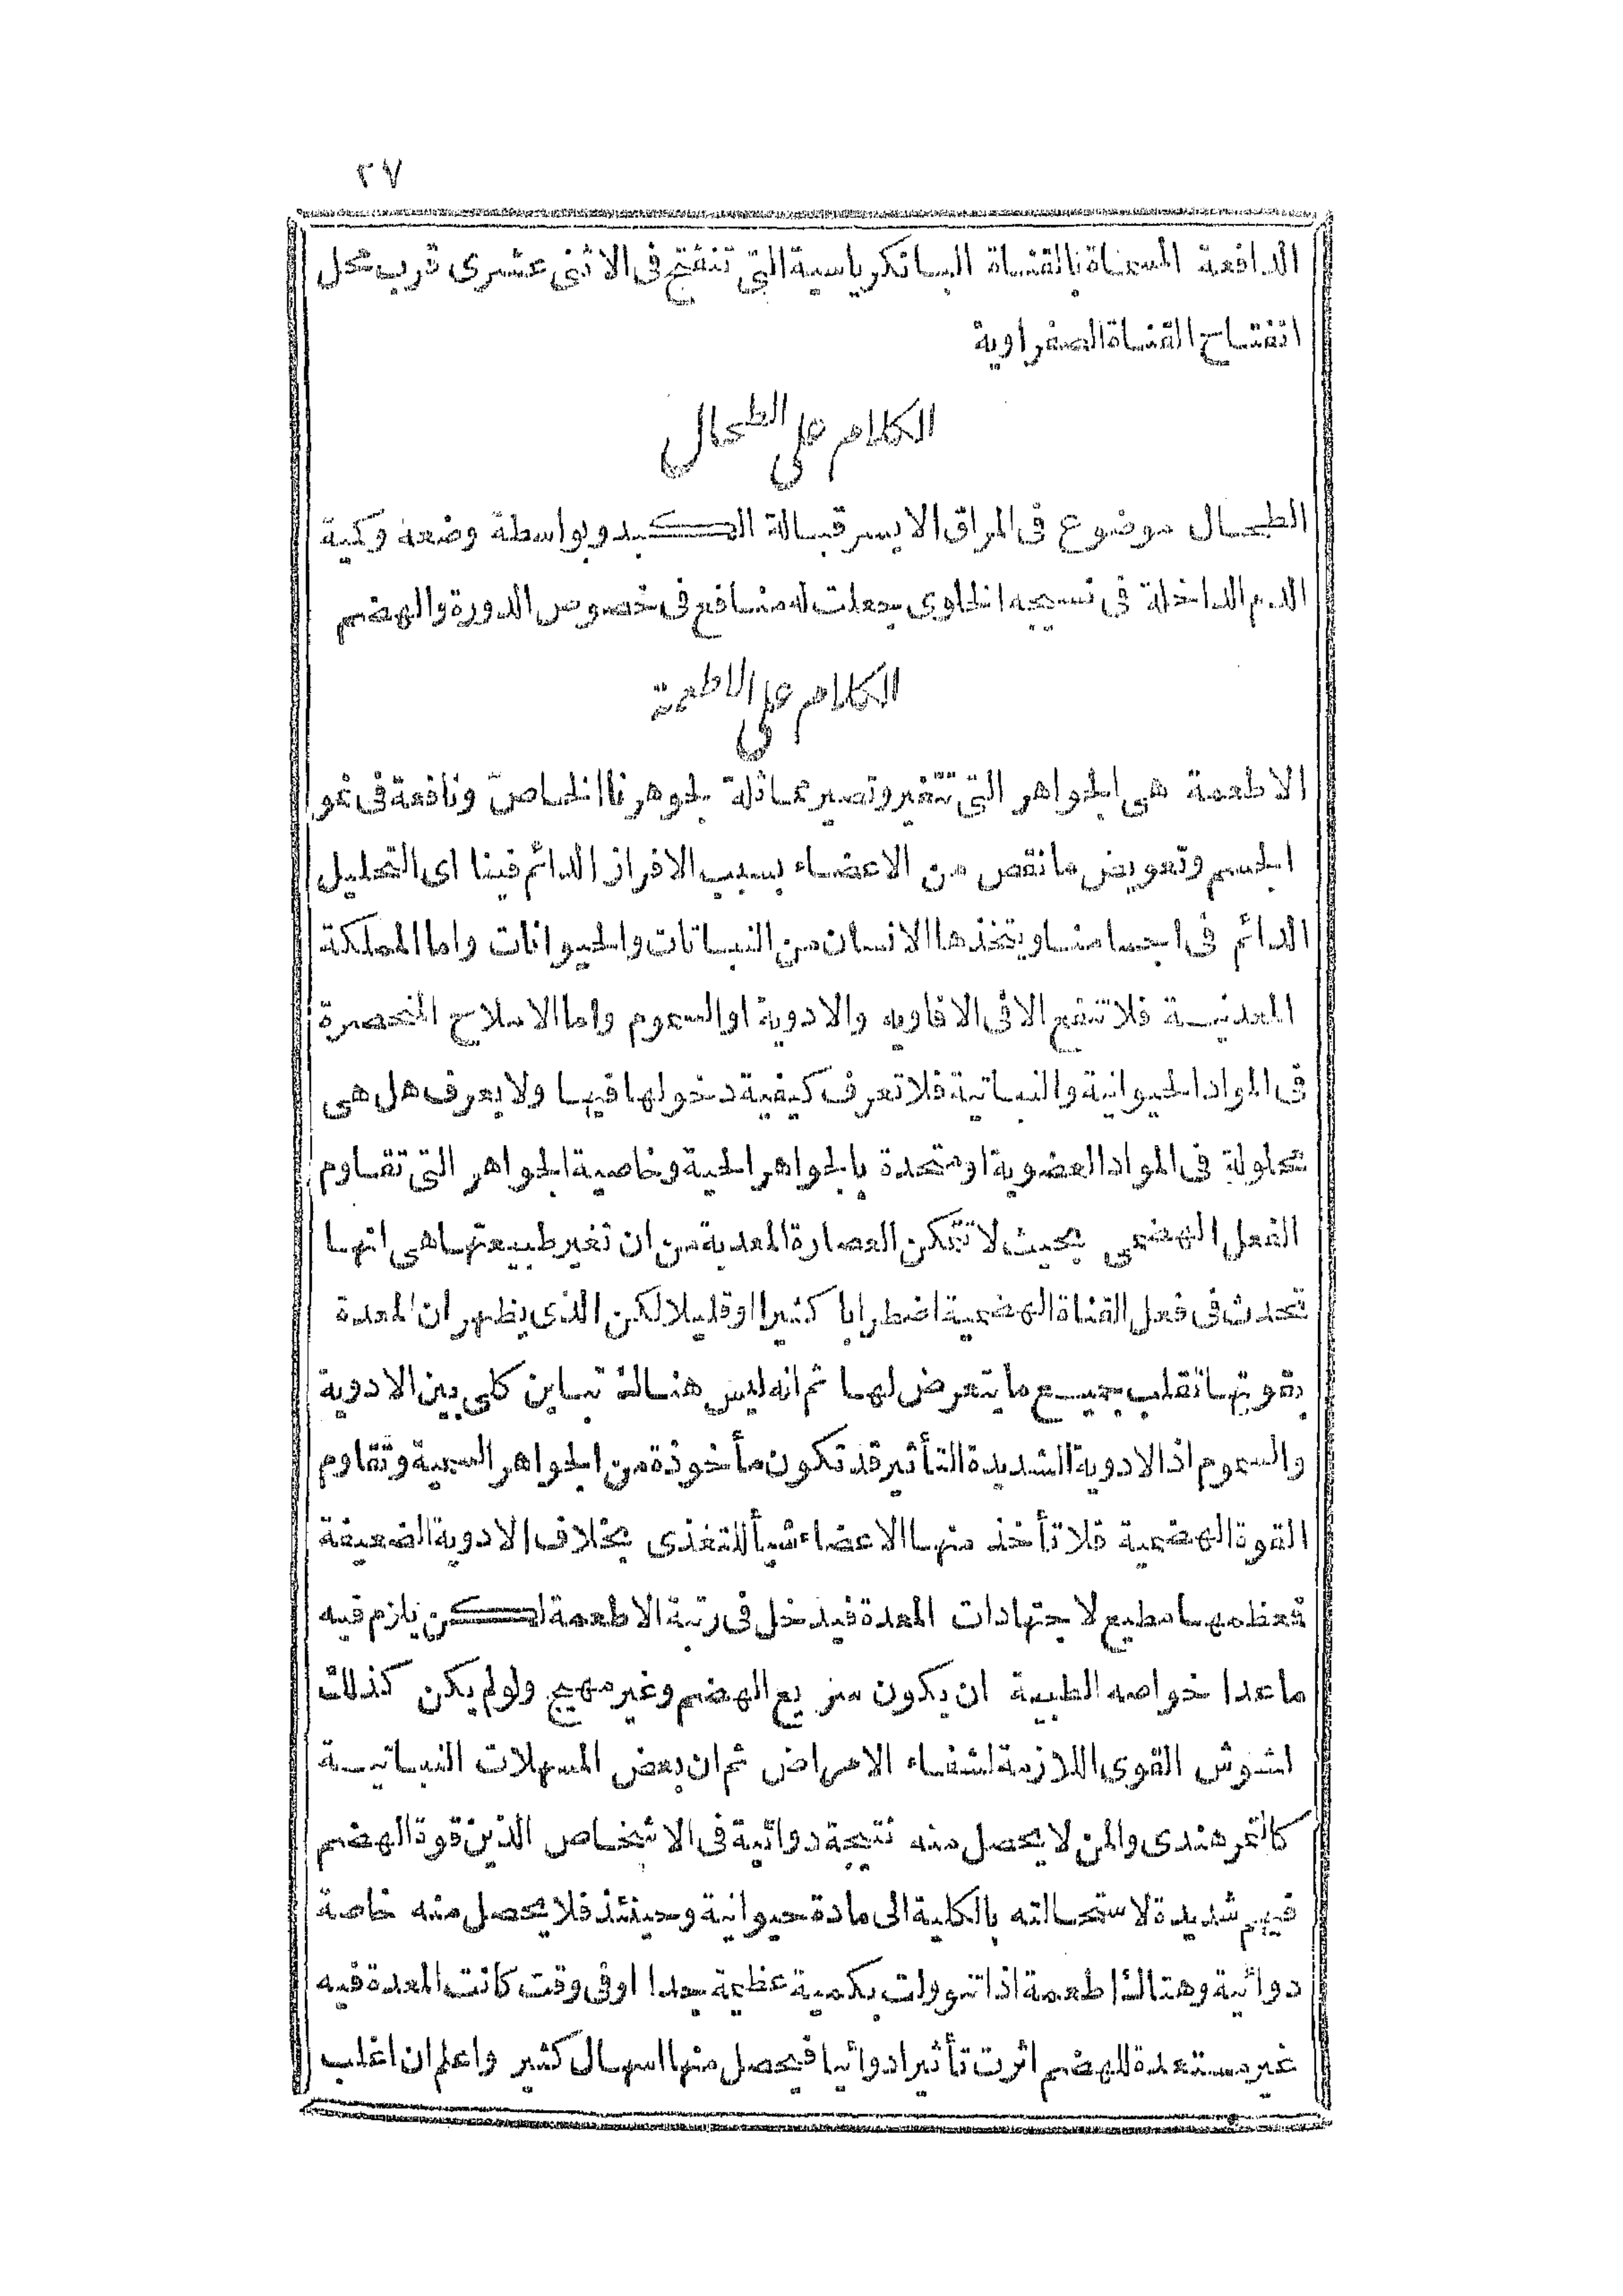 ٢٧
الدافعة المسماة بالقناة البانكرياسية التى تنفتح فى الاثنى عشرى قرب محل
انفتاح القناة الصفراوية
الكلام على الطحال
الطحال موضوع فى المراق الايسر قبالة الكبد وبواسطة وضعه وكمية
الدم الداخلة فى نسيجه الخلوى جعلت له منافع فى خصوص الدورة والهضم
الكلام على الاطعمة
الاطعمة هى الجواهر التى تتغير وتصير مماثلة لجوهرنا الخاص ونافعة فى نمو
الجسم وتعويض ما نقص من الاعضاء بسبب الافراز الدائم فينا اى التحليل
الدائم فى اجسامنا ويتخذها الانسان من النباتات والحيوانات واما المملكة
المعدنية فلا تنفع الا فى الافاويه والادوية او السموم واما الاملاح المنحصرة
فى المواد الحيوانية والنباتية فلا تعرف كيفية دخولها فيها ولا يعرف هل هى
محلولة فى المواد العضوية او متحدة بالجواهر الحية وخاصية الجواهر التى تقاوم
الفعل الهضمى بحيث لا تتمكن العصارة المعدية من ان تغير طبيعتها هى انها
تحدث فى فعل القناة الهضمية اضطرابا كثيرا او قليلا لكن الذى يظهر ان المعدة
بقوتها تقلب جميع ما يتعرض لها ثم انه ليس هناك تباين كلى بين الادوية
والسموم اذ الادوية الشديدة التأثير قد تكون مأخوذة من الجواهر السمية وتقاوم
القوة الهضمية فلا تأخذ منها الاعضاء شيأ للتغذى بخلاف الادوية الضعيفة
فمعظمها مطيع لاجتهادات المعدة فيدخل فى رتبة الاطعمة لكن يلزم فيه
ما عدا خواصه الطبية ان يكون سريع الهضم وغير مهيج ولو لم يكن كذلك
لشوش القوى اللازمة لشفاء الامراض ثم ان بعض المسهلات النباتية
كالتمر هندى والمن لا يحصل منه نتيجة دوائية فى الاشخاص الذين قوة الهضم
فيهم شديدة لاستحالته بالكلية الى مادة حيوانية وحينئذ فلا يحصل منه خاصة
دوائية وهناك اطعمة اذا تنوولت بكمية عظيمة جدا او فى وقت كانت المعدة فيه
غير مستعدة للهضم اثرت تأثيرا دوائيا فيحصل منها اسهال كثير واعلم ان اغلب